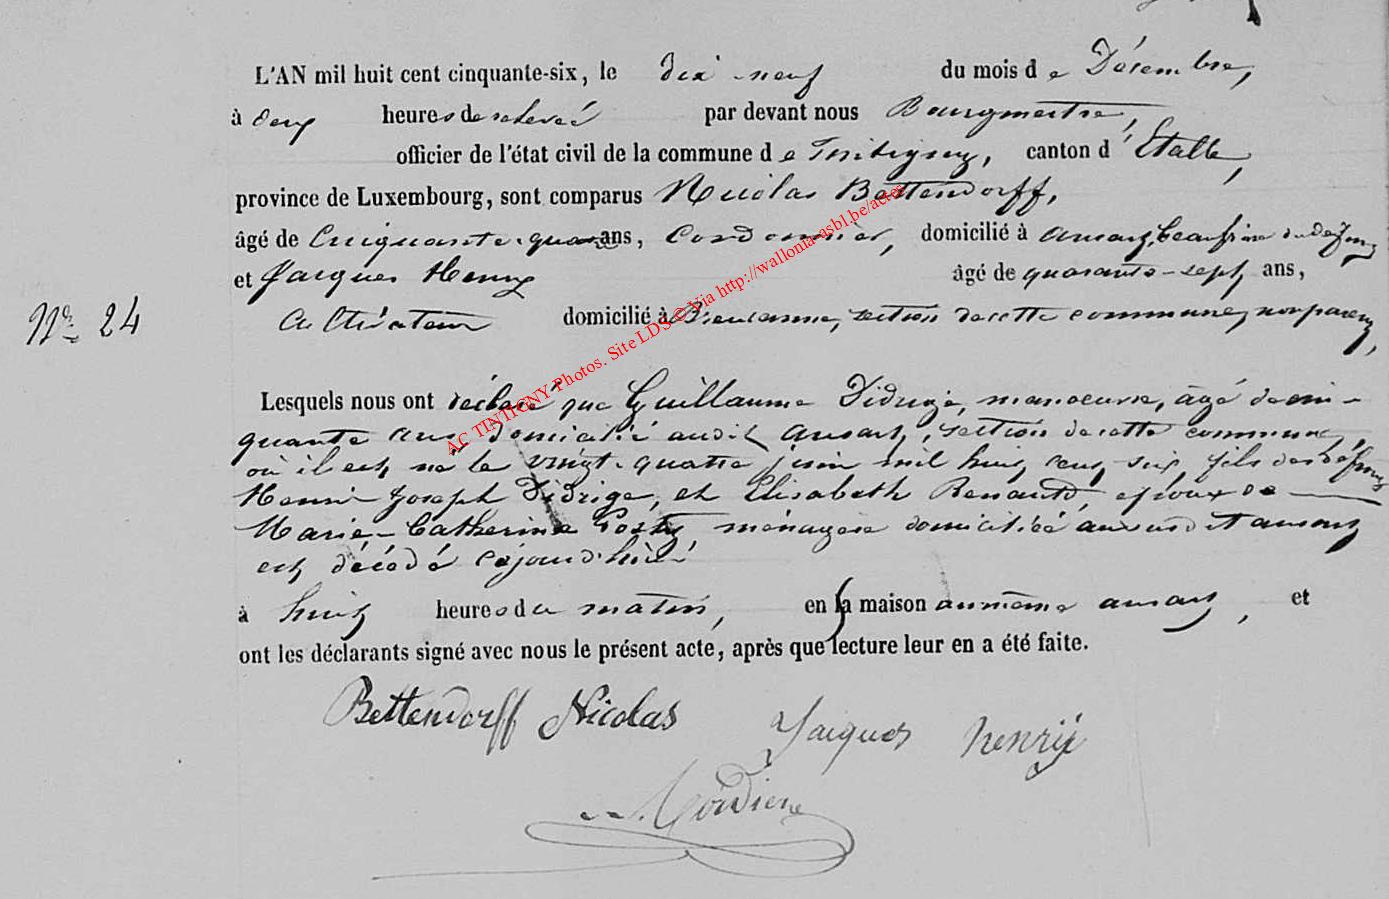 L'AN mil huit cent cinquante-six, le dix neuf du mois de Décembre,
à deux heures de relevée par devant nous Bourgmestre,
officier de l'état civil de la commune de Tintigny, canton d'Etalle,
province de Luxembourg, sont comparus Nicolas Bettendorff,
âgé de Cinquante-quatre ans, Cordonnier, domicilié à ansart, beaufrère du défunt
et Jacques Henry âgé de quarante-sept ans,
Nro 24
Cultivateur domicilié à Breuvanne, section de cette commune, non parent,
Lesquels nous ont déclaré que Guillaume Didrige, manoeuvre, âgé de cin-
quante ans domicilié audit ansart, section de cette commune,
où il est né le vingt-quatre juin mil huit cent six, fils des défunts
Henri Joseph Didrige, et Elisabeth Renauld, époux de
Marie-Catherine ménagère domiciliée au susdit ansart
est décédé cejourd'hui
à huit heures du matin, en sa maison au même ansart, et
ont les déclarants signé avec nous le présent acte, après que lecture leur en a été faite.
Bettendorff Nicolas Jaiques henrÿ
AC TINTIGNY Photos. Site LDS © Via http://wallonia-asbl.be/actes